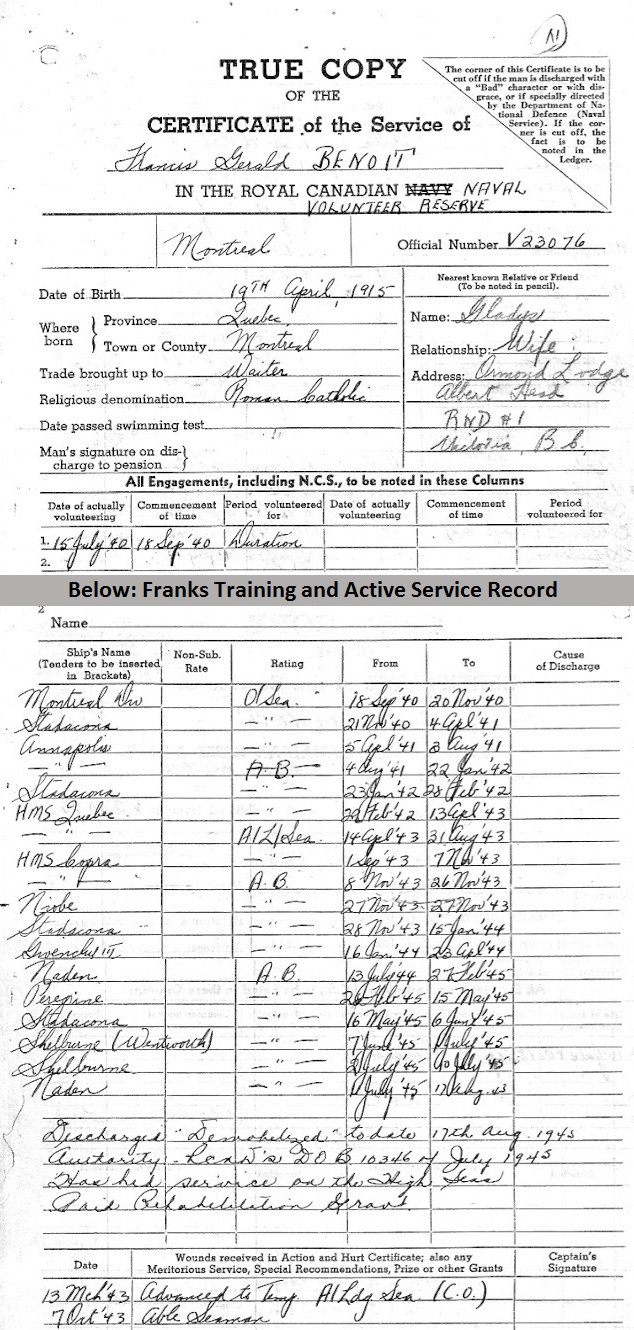 A1
TRUE COPY
OF THE
CERTIFICATE of the Service of
Francis Gerald BENOIT
IN THE ROYAL CANADIAN NAVY NAVAL
VOLUNTEER RESERVE
The corner of this Certificate is to be
cut off if the man is discharged with
a "Bad" character or with dis-
grace, or if specially directed
by the Department of Na-
tional Defence (Naval
Service). If the cor-
ner is cut off, the
fact is to be
noted in the
Ledger.
Montreal
Official Number V23076
Date of Birth 19TH April, 1915
Where born
Province Quebec
Town or County Montreal
Trade brought up to Waiter
Religious denomination Roman Catholic
Date passed swimming test
Man's signature on dis-
charge to pension
Nearest known Relative or Friend
(To be noted in pencil).
Name: Gladys
Relationship: Wife
Address: Ormond Lodge
Albert Head
RND #1
Victoria, B.C.
All Engagements, including N.C.S., to be noted in these Columns
Date of actually volunteering Commencement of time Period volunteered for Date of actually volunteering Commencement of time Period volunteered for
1. 15 July '40 18 Sep '40 Duration
2.
Below: Franks Training and Active Service Record
2
Name
Ship's Name (Tenders to be inserted in Brackets) Non-Sub. Rate Rating From To Cause of Discharge
Montreal O/Sea. 18 Sep '40 20 Nov '40
Stadacona — " — 21 Nov '40 4 Apl '41
Annapolis — " — 5 Apl '41 3 Aug '41
— " — A.B. 4 Aug '41 22 Jan '42
Stadacona — " — 23 Jan '42 28 Feb '42
HMS Quebec — " — Feb '42 13 Apl '43
— " — A/L/Sea. 14 Apl '43 31 Aug '43
HMS Copra — " — 1 Sep '43 7 Nov '43
— " — A.B. 8 Nov '43 26 Nov '43
Niobe — " — 27 Nov '43 27 Nov '43
Stadacona — " — 28 Nov '43 15 Jan '44
Givenchy III — " — 16 Jan '44 23 Apl '44
Naden A.B. 13 July '44 27 Feb '45
Peregine — " — 28 Feb '45 15 May '45
Stadacona — " — 16 May '45 6 June '45
Shelburne (Wentworth) — " — 7 June '45 1 July '45
Shelburne — " — 2 July '45 10 July '45
Naden — " — July '45 17 Aug.
Discharged "Demobilized" to date 17th Aug. 1945
Authority - DOB 10346 of July 1945
Has had service on the High Seas
Paid Rehabilitation Grant.
Date Wounds received in Action and Hurt Certificate; also any Meritorious Service, Special Recommendations, Prize or other Grants Captain's Signature
13 Mch '43 Advanced to Temp. A/Ldg Sea (C.O.)
7 Oct '43 Able Seaman